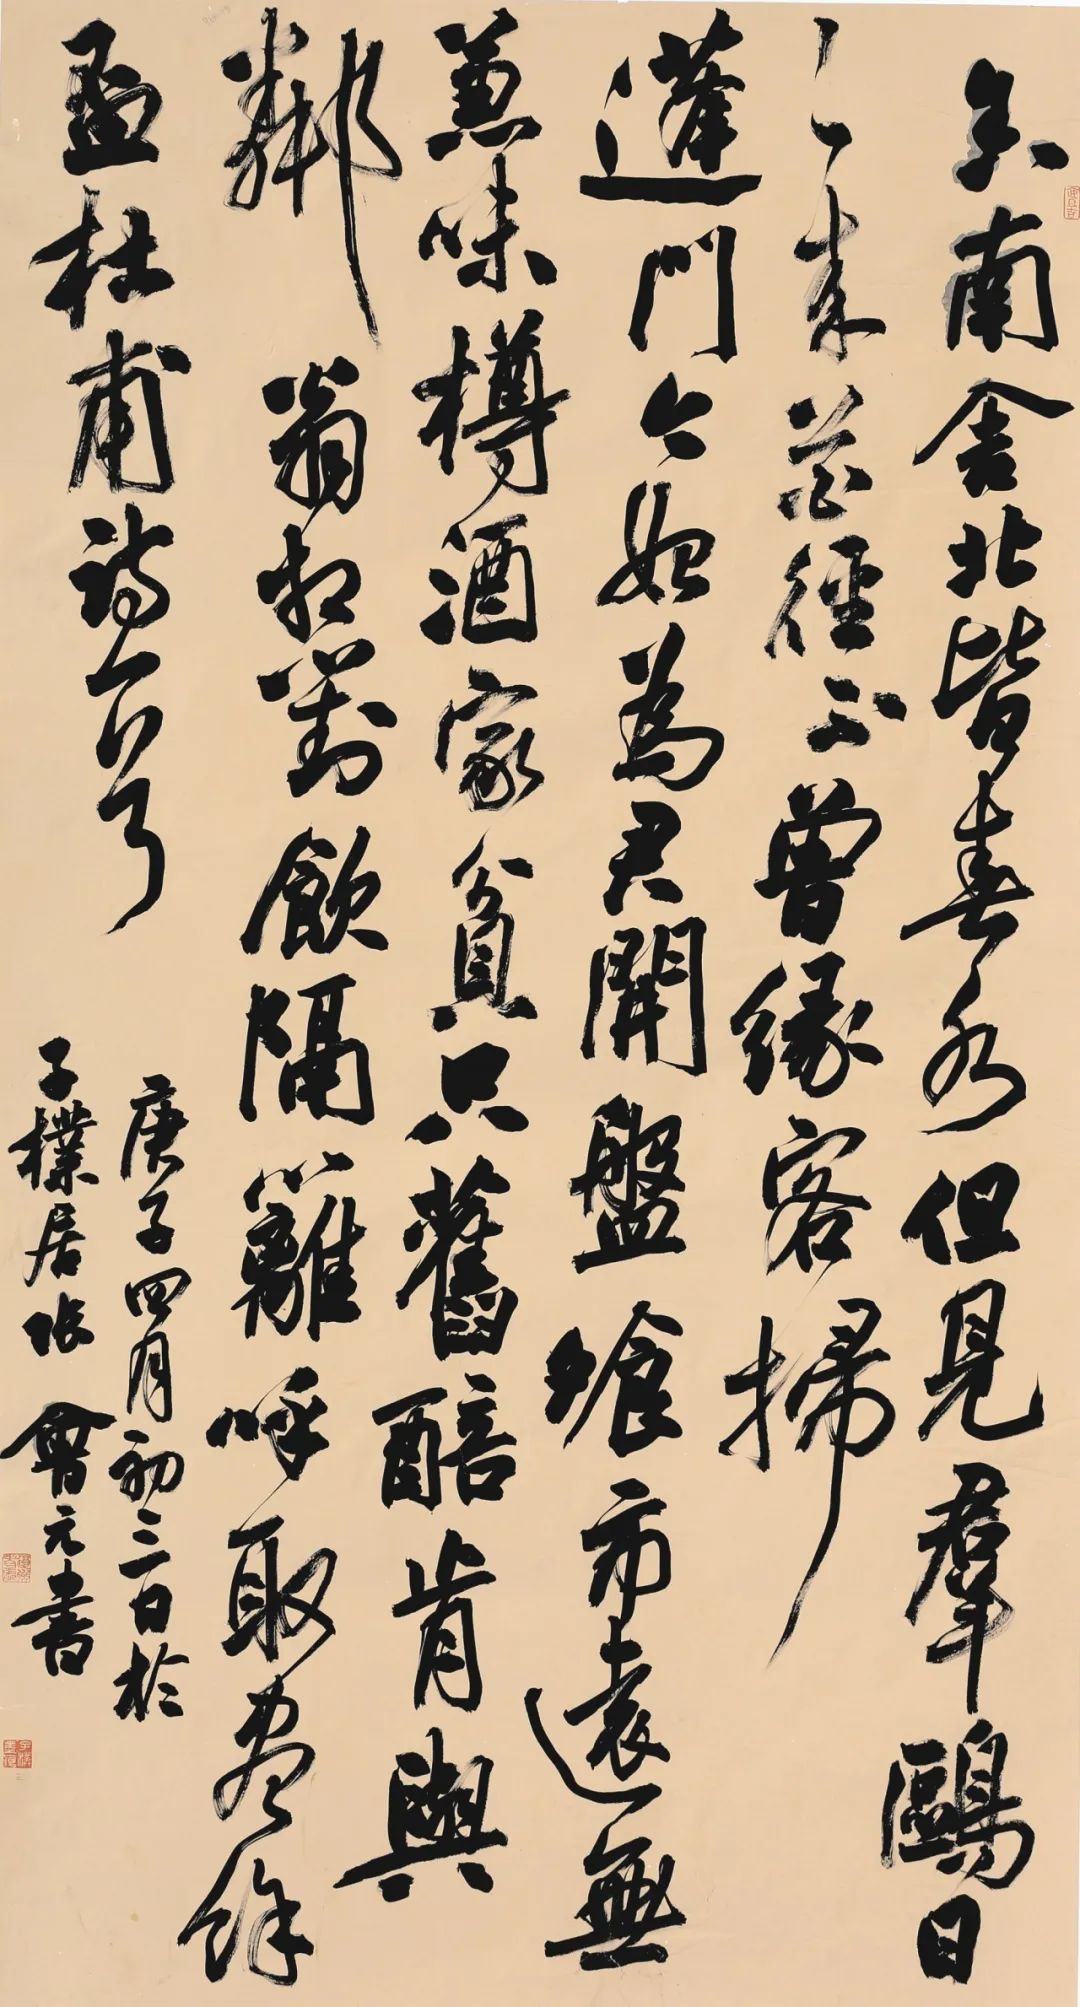 舍南舍北皆春水但見羣鷗日
々來花徑不曾緣客掃
蓬門今始為君開盤飧市遠無
兼味樽酒家貧只舊醅肯與
鄰翁相對飲隔籬呼取盡餘
盃杜甫詩一首
庚子四月初三日於
子樸居張會元書